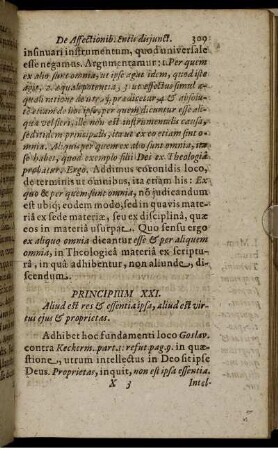 De Affectionib. Entis disjunct. 309
insinuari instrumentum, quod universale
esse negamus. Argumentamur: 1. Per quem
ex alio sunt omnia, ut ipse agat idem, quod iste
agit, 2. æquale potentia, 3. ut ea effectus simul æ-
quali ratione
to eadem de hoc ipso, per quem dicuntur esse ali-
qua vel fieri, ille non est instrumentalis causa,
sed itidem principalis, itaut ex eo etiam sint o-
mnia. Aliqui per quem ex alio sunt omnia, ita
se habet, quod exemplo filii Dei ex Theologia
probatur. Ergo. Addimus coronidis loco,
de terminis ut omnibus, ita etiam his: Ex
quo & per quem sunt omnia, nō judicandum
est ubiq; eodem modo, sed in quavis mate-
riâ ex sede materiæ, seu ex disciplinâ, quæ
eos in materiâ usurpat. Quo sensu ergo
ex aliquo omnia dicantur esse & per aliquem
omnia, in Theologicâ materiâ ex scriptu-
râ, in quâ adhibentur, non aliunde, di-
scendum.
PRINCIPIUM XXI.
Aliud est res & essentia ipsa, aliud est vir-
tus ejus & proprietas.
Adhibet hoc fundamenti loco Goslav.
contra Keckerm. part. 1. refut. pag. 9. in quæ-
stione, utrum intellectus in Deo sit ipse
Deus. Proprietas, inquit, non est ipsa essentia.
X 3 Intel-